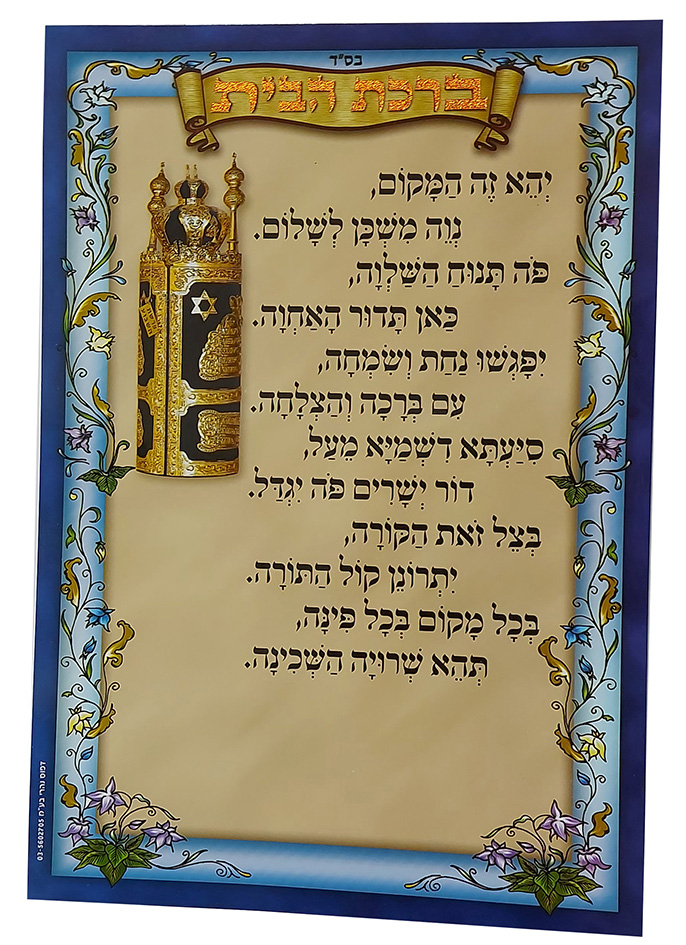 בס"ד
ברכת הבית
יְהֵא זֶה הַמָּקוֹם,
נְוֵה מִשְׁכָּן לְשָׁלוֹם.
פֹּה תָּנוּחַ הַשַּׁלְוָה,
כַּאן תָּדוּר הָאַחְוָה.
יִפָּגְשׁוּ נַחַת וְשִׂמְחָה,
עִם בְּרָכָה וְהַצְלָחָה.
סִיַעְתָּא דִשְׁמַיָּא מֵעַל,
דוֹר יְשָׁרִים פֹּה יִגְדַּל.
בְּצֵל זֹאת הַקּוֹרָה,
יִתְרוֹנֵן קוֹל הַתּוֹרָה.
בְּכָל מָקוֹם בְּכָל פִּינָּה,
תְּהֵא שְׁרוּיָה הַשְּׁכִינָה.
דפוס נהרי בע"מ 03-5602705